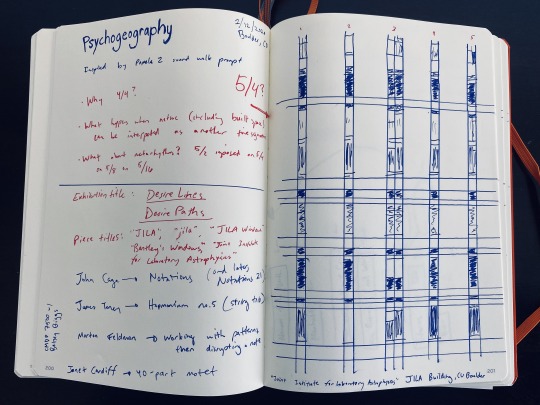 Psychogeography
2/12/2020
Boulder, CO
Inspired by Popule 2 sound walk prompt
5/4?
· Why 4/4?
· What happens when nature (including built space)
can be interpreted as another time signature
· What about metarhythms? 5/2 imposed on 5/4
on 5/8 on 5/16
Exhibition title: Desire Lines
Desire Paths
Piece titles: "JILA", "jila", "JILA Windows"
"Bentley's Windows," "Joint Institute
for Laboratory Astrophysics"
John Cage → Notations (and later
Notations 21)
James Tenney → Harmonium no. 5 (string trio)
Morton Feldman → working with patterns
then disrupting a note
Janet Cardiff → 40-part motet
Betsy Biggs
200
1 2 3 4 5
"Joint Institute for Laboratory Astrophysics" JILA Building, CU Boulder
201